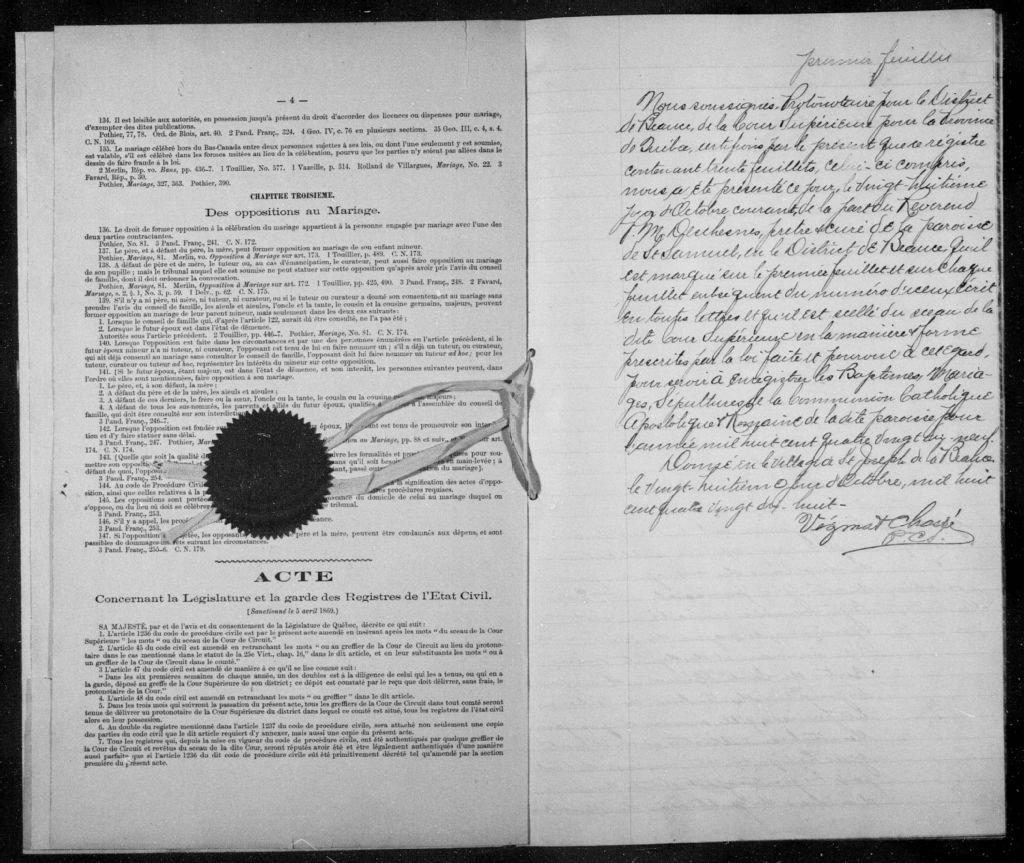 — 4 —
134. Il est loisible aux autorités, en possession jusqu'à présent du droit d'accorder des licences ou dispenses pour mariage,
d'exempter des dites publications.
Pothier, 77, 78. Ord. de Blois, art. 40. 2 Pand. Franç., 324. 4 Geo. IV, c. 76 en plusieurs sections. 35 Geo. III, c. 4, s. 4.
C. N. 169.
135. Le mariage célébré hors du Bas-Canada entre deux personnes sujettes à ses lois, ou dont l'une seulement y est soumise,
est valable, s'il est célébré dans les formes usitées au lieu de la célébration, pourvu que les parties n'y soient pas allées dans le
dessin de faire fraude à la loi.
2 Merlin, Rép. vo. Bans, pp. 436-7. 1 Touillier, No. 577. 1 Vazille, p. 314. Rolland de Villargues, Mariage, No. 22. 3
Favard, Rép., p. 50.
Pothier, Mariage, 327, 363. Pothier, 390.
CHAPITRE TROISIEME.
Des oppositions au Mariage.
136. Le droit de former opposition à la célébration du mariage appartient à la personne engagée par mariage avec l'une des
deux parties contractantes.
Pothier, No. 81. 3 Pand. Franç., 241. C. N. 172.
137. Le père, et à défaut du père, la mère, peut former opposition au mariage de son enfant mineur.
Pothier, Mariage, 81. Merlin, vo. Opposition à Mariage sur art. 173. 1 Touillier, p. 489. C. N. 173.
138. A défaut de père et de mère, le tuteur ou, au cas d'émancipation, le curateur, peut aussi faire opposition au mariage
de son pupille; mais le tribunal auquel elle est soumise ne peut statuer sur cette opposition qu'après avoir pris l'avis du conseil
de famille, dont il doit ordonner la convocation.
Pothier, Mariage, 81. Merlin, Opposition à Mariage sur art. 172. 1 Touillier, pp. 425, 490. 3 Pand. Franç., 248. 2 Favard,
Mariage, s. 2, § 1, No. 3, p. 59. 1 Delv., p. 62. C. N. 175.
139. S'il n'y a ni père, ni mère, ni tuteur, ni curateur, ou si le tuteur ou curateur a donné son consentement au mariage sans
prendre l'avis du conseil de famille, les aieuls et aieules, l'oncle et la tante, le cousin et la cousine germains, majeurs, peuvent
former opposition au mariage de leur parent mineur, mais seulement dans les deux cas suivants :
1. Lorsque le conseil de famille qui, d'après l'article 122, aurait dû être consulté, ne l'a pas été ;
2. Lorsque le futur époux est dans l'état de démence.
Autorités sous l'article précédent. 2 Touillier, pp. 446-7. Pothier, Mariage, No. 81. C. N. 174.
140. Lorsque l'opposition est faite dans les circonstances et par une des personnes énumérées en l'article précédent, si le
futur époux mineur n'a ni tuteur, ni curateur, l'opposant est tenu de lui en faire nommer un ; s'il a déjà un tuteur, ou curateur,
qui ait déjà consenti au mariage sans consulter le conseil de famille, l'opposant doit lui faire nommer un tuteur ad hoc ; pour les
tuteur, curateur ou tuteur ad hoc, représenter les intérêts du mineur sur cette opposition.
141. [Si le futur époux, étant majeur, est dans l'état de démence, et non interdit, les personnes suivantes peuvent, dans
l'ordre où elles sont mentionnées, faire opposition à son mariage.
1. Le père, et, à son défaut, la mère ;
2. A défaut du père et de la mère, les aieuls et aieules ;
3. A défaut de ces derniers, le frère ou la sœur, l'oncle ou la tante, le cousin ou la cousine majeurs ;
4. A défaut de tous les sus-nommés, les parents et alliés du futur époux, qualifiés à l'assemblée du conseil de
famille, qui doit être consulté sur son interdiction
3 Pand. Franç., 246-7.
142. Lorsque l'opposition est fondée époux, l'opposant est tenu de promouvoir son inter-
tion et d'y faire statuer sans délai.
3 Pand. Franç., 247. Pothier, Mar ion au Mariage, pp. 88 et suiv. art.
174. C. N. 174.
143. [Quelle que soit la qualité d ivre les formalités et pour sou-
mettre son opposition tribunal et d sans qu'il soit besoin n main-levée ; à
défaut de quoi, l'opposition ant, passé outre ation du mariage].
3 Pand. Franç., 254.
144. Au code de Procédure Civil la signification des actes d'oppo-
sition, ainsi que celles relatives à la p es procédures requises.
145. Les oppositions sont portées ance du domicile de celui au mariage duquel on
s'oppose, ou du lieu où doit se célébrer tribunal.
3 Pand. Franç., 253.
146. S'il y a appel, les procé ance.
3 Pand. Franç., 253.
147. Si l'opposition rejetée, les opposants père et la mère, peuvent être condamnés aux dépens, et sont
passibles de dommages-intérêts suivant les circonstances.
3 Pand. Franç., 255-6. C. N. 179.
ACTE
Concernant la Législature et la garde des Registres de l'Etat Civil.
[Sanctionné le 5 avril 1869.]
SA MAJESTÉ, par et de l'avis et du consentement de la Législature de Québec, décrète ce qui suit :
1. L'article 1236 du code de procédure civile est par le présent acte amendé en insérant après les mots " du sceau de la Cour
Supérieure " les mots " ou du sceau de la Cour de Circuit."
2. L'article 45 du code civil est amendé en retranchant les mots " ou au greffier de la Cour de Circuit au lieu du protono-
taire dans le cas mentionné dans le statut de la 25e Vict., chap. 16," dans le dit article, et en leur substituants les mots " ou à
un greffier de la Cour de Circuit dans le comté."
3 L'article 47 du code civil est amendé de manière à ce qu'il se lise comme suit :
" Dans les six premières semaines de chaque année, un des doubles est à la diligence de celui qui les a tenus, ou qui en a
la garde, déposé au greffe de la Cour Supérieure de son district ; ce dépôt est constaté par le reçu que doit délivrer, sans frais, le
protonotaire de la Cour."
4. L'article 48 du code civil est amendé en retranchant les mots " ou greffier " dans le dit article.
5. Dans les trois mois qui suivront la passation du présent acte, tous les greffiers de la Cour de Circuit dans tout comté seront
tenus de délivrer au protonotaire de la Cour Supérieure du district dans lequel ce comté est situé, tous les registres de l'état civil
alors en leur possession.
6. Au double du registre mentionné dans l'article 1237 du code de procédure civile, sera attaché non seulement une copie
des parties du code civil que le dit article requiert d'y annexer, mais aussi une copie du présent acte.
7. Tous les registres qui, depuis la mise en vigueur du code de procédure civile, ont été authentiqués par quelque greffier de
la Cour de Circuit et revêtus du sceau de la dite Cour, seront réputés avoir été et être légalement authentiqués d'une manière
aussi parfaite que si l'article 1236 du dit code de procédure civile eût été primitivement décrété tel qu'amendé par la section
première du présent acte.
premier feuillet
Nous soussignés Protonotaire pour le District
de Beauce, de la Cour Supérieure pour la Province
de Québec, certifions par le présent que ce régistre
contenant trente feuillets, celui-ci compris,
nous a été présenté ce jour, le vingt-huitième
jour d'Octobre courant, de la part du Révérend
J. M. Deschesnes, prêtre & curé de la paroisse
de St Samuel, en le District de Beauce, qu'il
est marqué sur le premier feuillet et sur chaque
feuillet subséquent du numéro d'iceux écrit
en toutes lettres et qu'il est scellé du sceau de la
dite Cour Supérieure en la manière & forme
prescrites par la loi faite et pourvue à cet égard,
pour servir à enregistrer les Baptêmes, Maria-
ges, Sépultures de la Communion Catholique
Apostolique & Romaine de la dite paroisse pour
l'année mil huit cent quatre vingt dix neuf.
Donné en le village de St Joseph de la Beauce
le vingt-huitième jour d'Octobre, mil huit
cent quatre vingt dix-huit-
Vézina & Chassé
P.C.S.